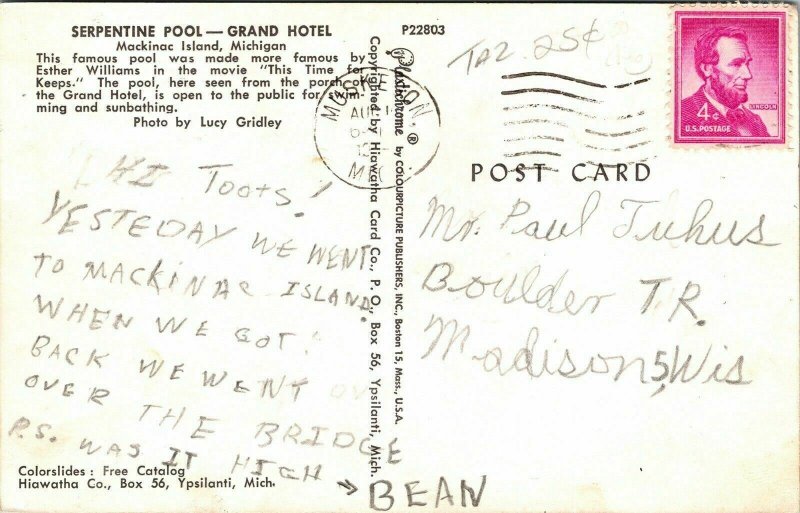 SERPENTINE POOL — GRAND HOTEL
Mackinac Island, Michigan
This famous pool was made more famous by
Esther Williams in the movie "This Time for
Keeps." The pool, here seen from the porch of
the Grand Hotel, is open to the public for swim-
ming and sunbathing.
Photo by Lucy Gridley
HI Toots!
YESTEDAY WE WENT
TO MACKINAC ISLAND.
WHEN WE GOT
BACK WE WENT
OVER THE BRIDGE
P.S. WAS IT HIGH
→ BEAN
Colorslides: Free Catalog
Hiawatha Co., Box 56, Ypsilanti, Mich.
Copyrighted by Hiawatha Card Co., P. O., Box 56, Ypsilanti, Mich.
Plastichrome ® by COLOURPICTURE PUBLISHERS, INC., Boston 15, Mass., U.S.A.
P22803
25¢
4¢
LINCOLN
U.S. POSTAGE
POST CARD
Mr. Paul Tuhus
Boulder TR.
Madison 5, Wis